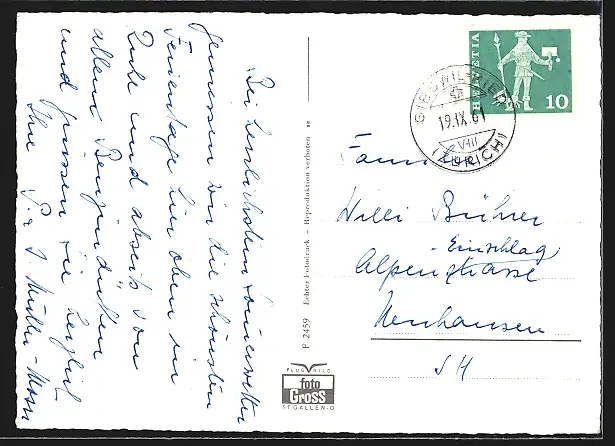 Bei herrlichstem Sommerwetter
geniessen wir die schönsten
Ferientage hier oben in
Ruhe und abseits von
allem Benzindüften
und grüssen Sie herzlich
Ihre P. & J. Müller - Moser
P 2459 Echter Fotodruck — Reproduktion verboten
FLUGBILD
foto
GROSS
ST. GALLEN-O
HELVETIA
10
GIBSWIL-RIED
19.IX.61
VIII
(ZÜRICH)
Fam.
Willi Bührer
Einschlag
Alpenstrasse
Neuhausen
SH